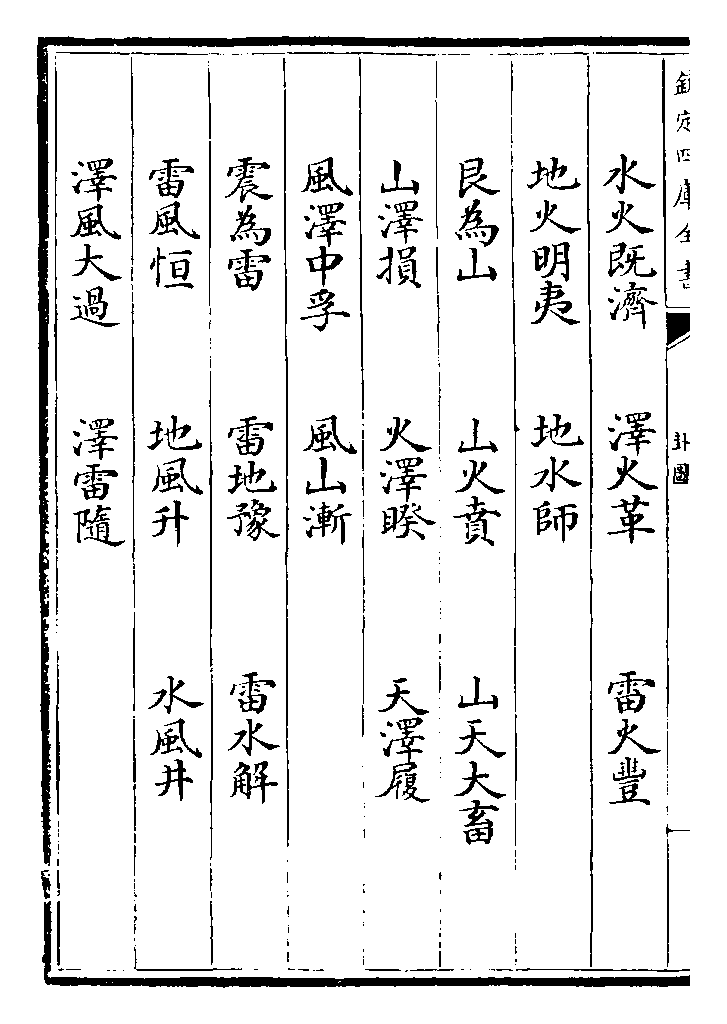 欽定四庫全書
卦圖
水火既濟 澤火革 雷火豐
地火明夷 地水師
艮為山 山火賁 山天大畜
山澤損 火澤睽 天澤履
風澤中孚 風山漸
震為雷 雷地豫 雷水解
雷風恒 地風升 水風井
澤風大過 澤雷隨